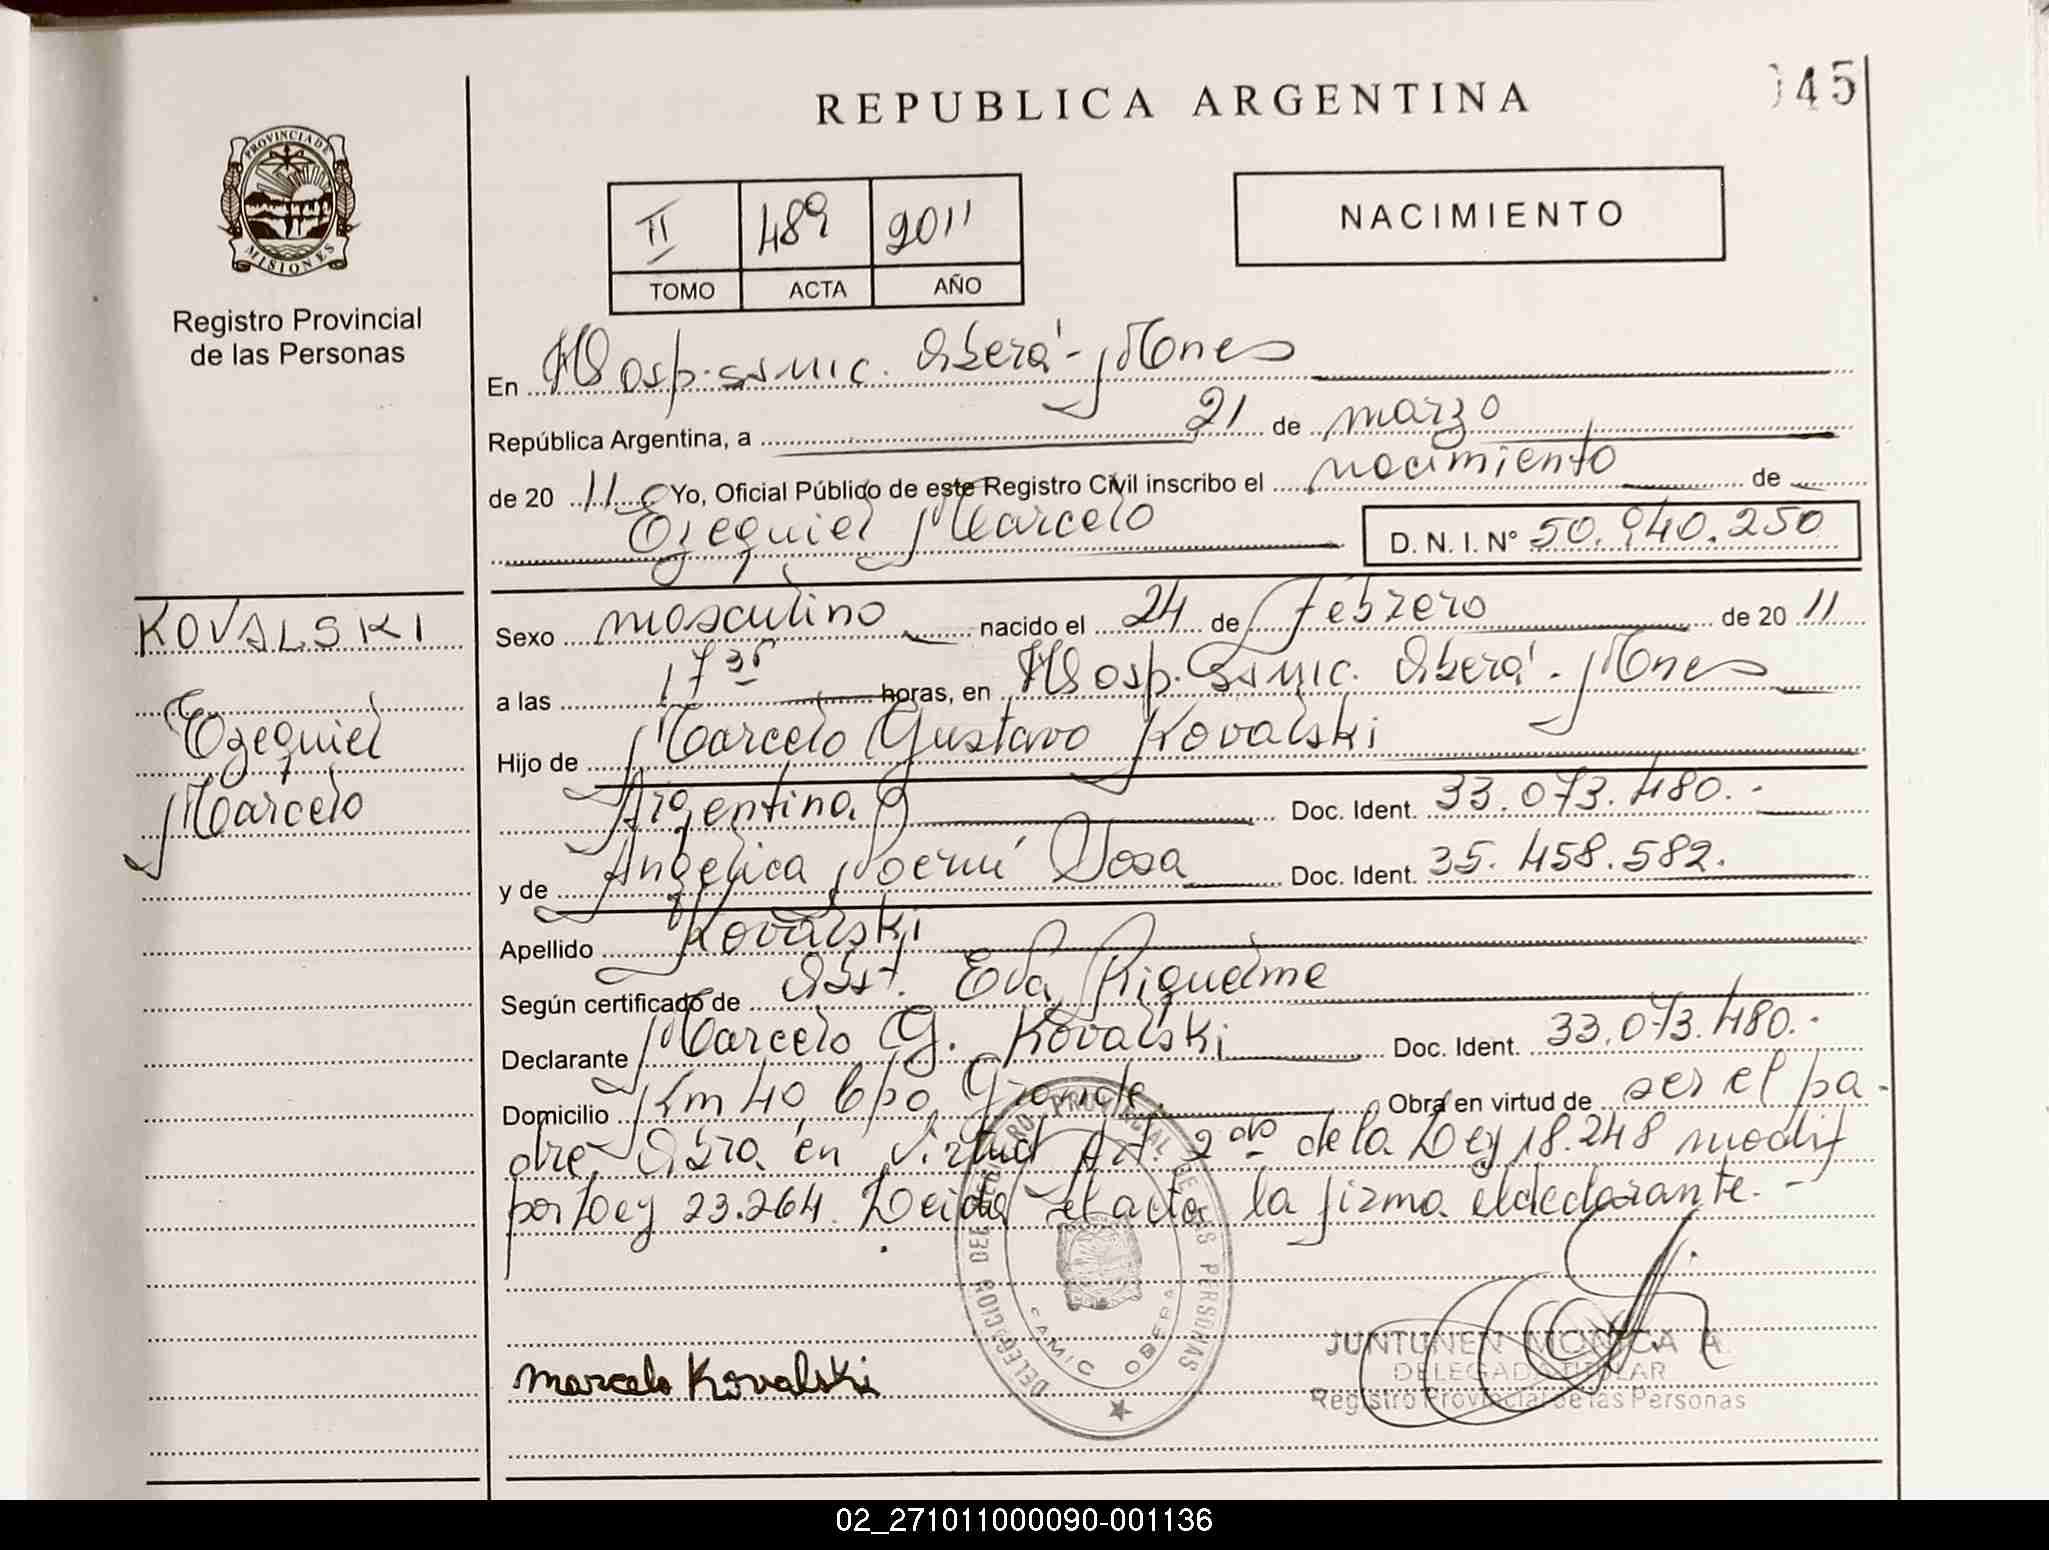 REPUBLICA ARGENTINA
045
PROVINCIA DE
MISIONES
Registro Provincial
de las Personas
II 489 2011
TOMO ACTA AÑO
NACIMIENTO
En Hosp. SSMIC. Oberá - Mnes
República Argentina, a 21 de marzo
de 20 11 Yo, Oficial Público de este Registro Civil inscribo el nacimiento de
Ezequiel Marcelo
D. N. I. N° 50.940.250
KOVALSKI
Ezequiel
Marcelo
Sexo masculino nacido el 24 de febrero de 20 11
a las 17 35 horas, en Hosp. SSMIC. Oberá - Mnes
Hijo de Marcelo Gustavo Kovalski
Argentina Doc. Ident. 33.073.480.-
y de Angélica Noemí Sosa Doc. Ident. 35.458.582.
Apellido Kovalski
Según certificado de Obst. Eva Riquelme
Declarante Marcelo G. Kovalski Doc. Ident. 33.073.480.-
Domicilio Km 40 Cpo Grande. Obra en virtud de ser el pa-
dre. Obra en virtud Art. 2do de la Ley 18.248 modif
por Ley 23.264. Leida el acta, la firma el declarante.-
DELEGACION DEL REGISTRO PROVINCIAL DE LAS PERSONAS
SAMIC OBERA
marcelo Kovalski
JUNTUNEN MONICA A.
DELEGADA TITULAR
Registro Provincial de las Personas
02_271011000090-001136